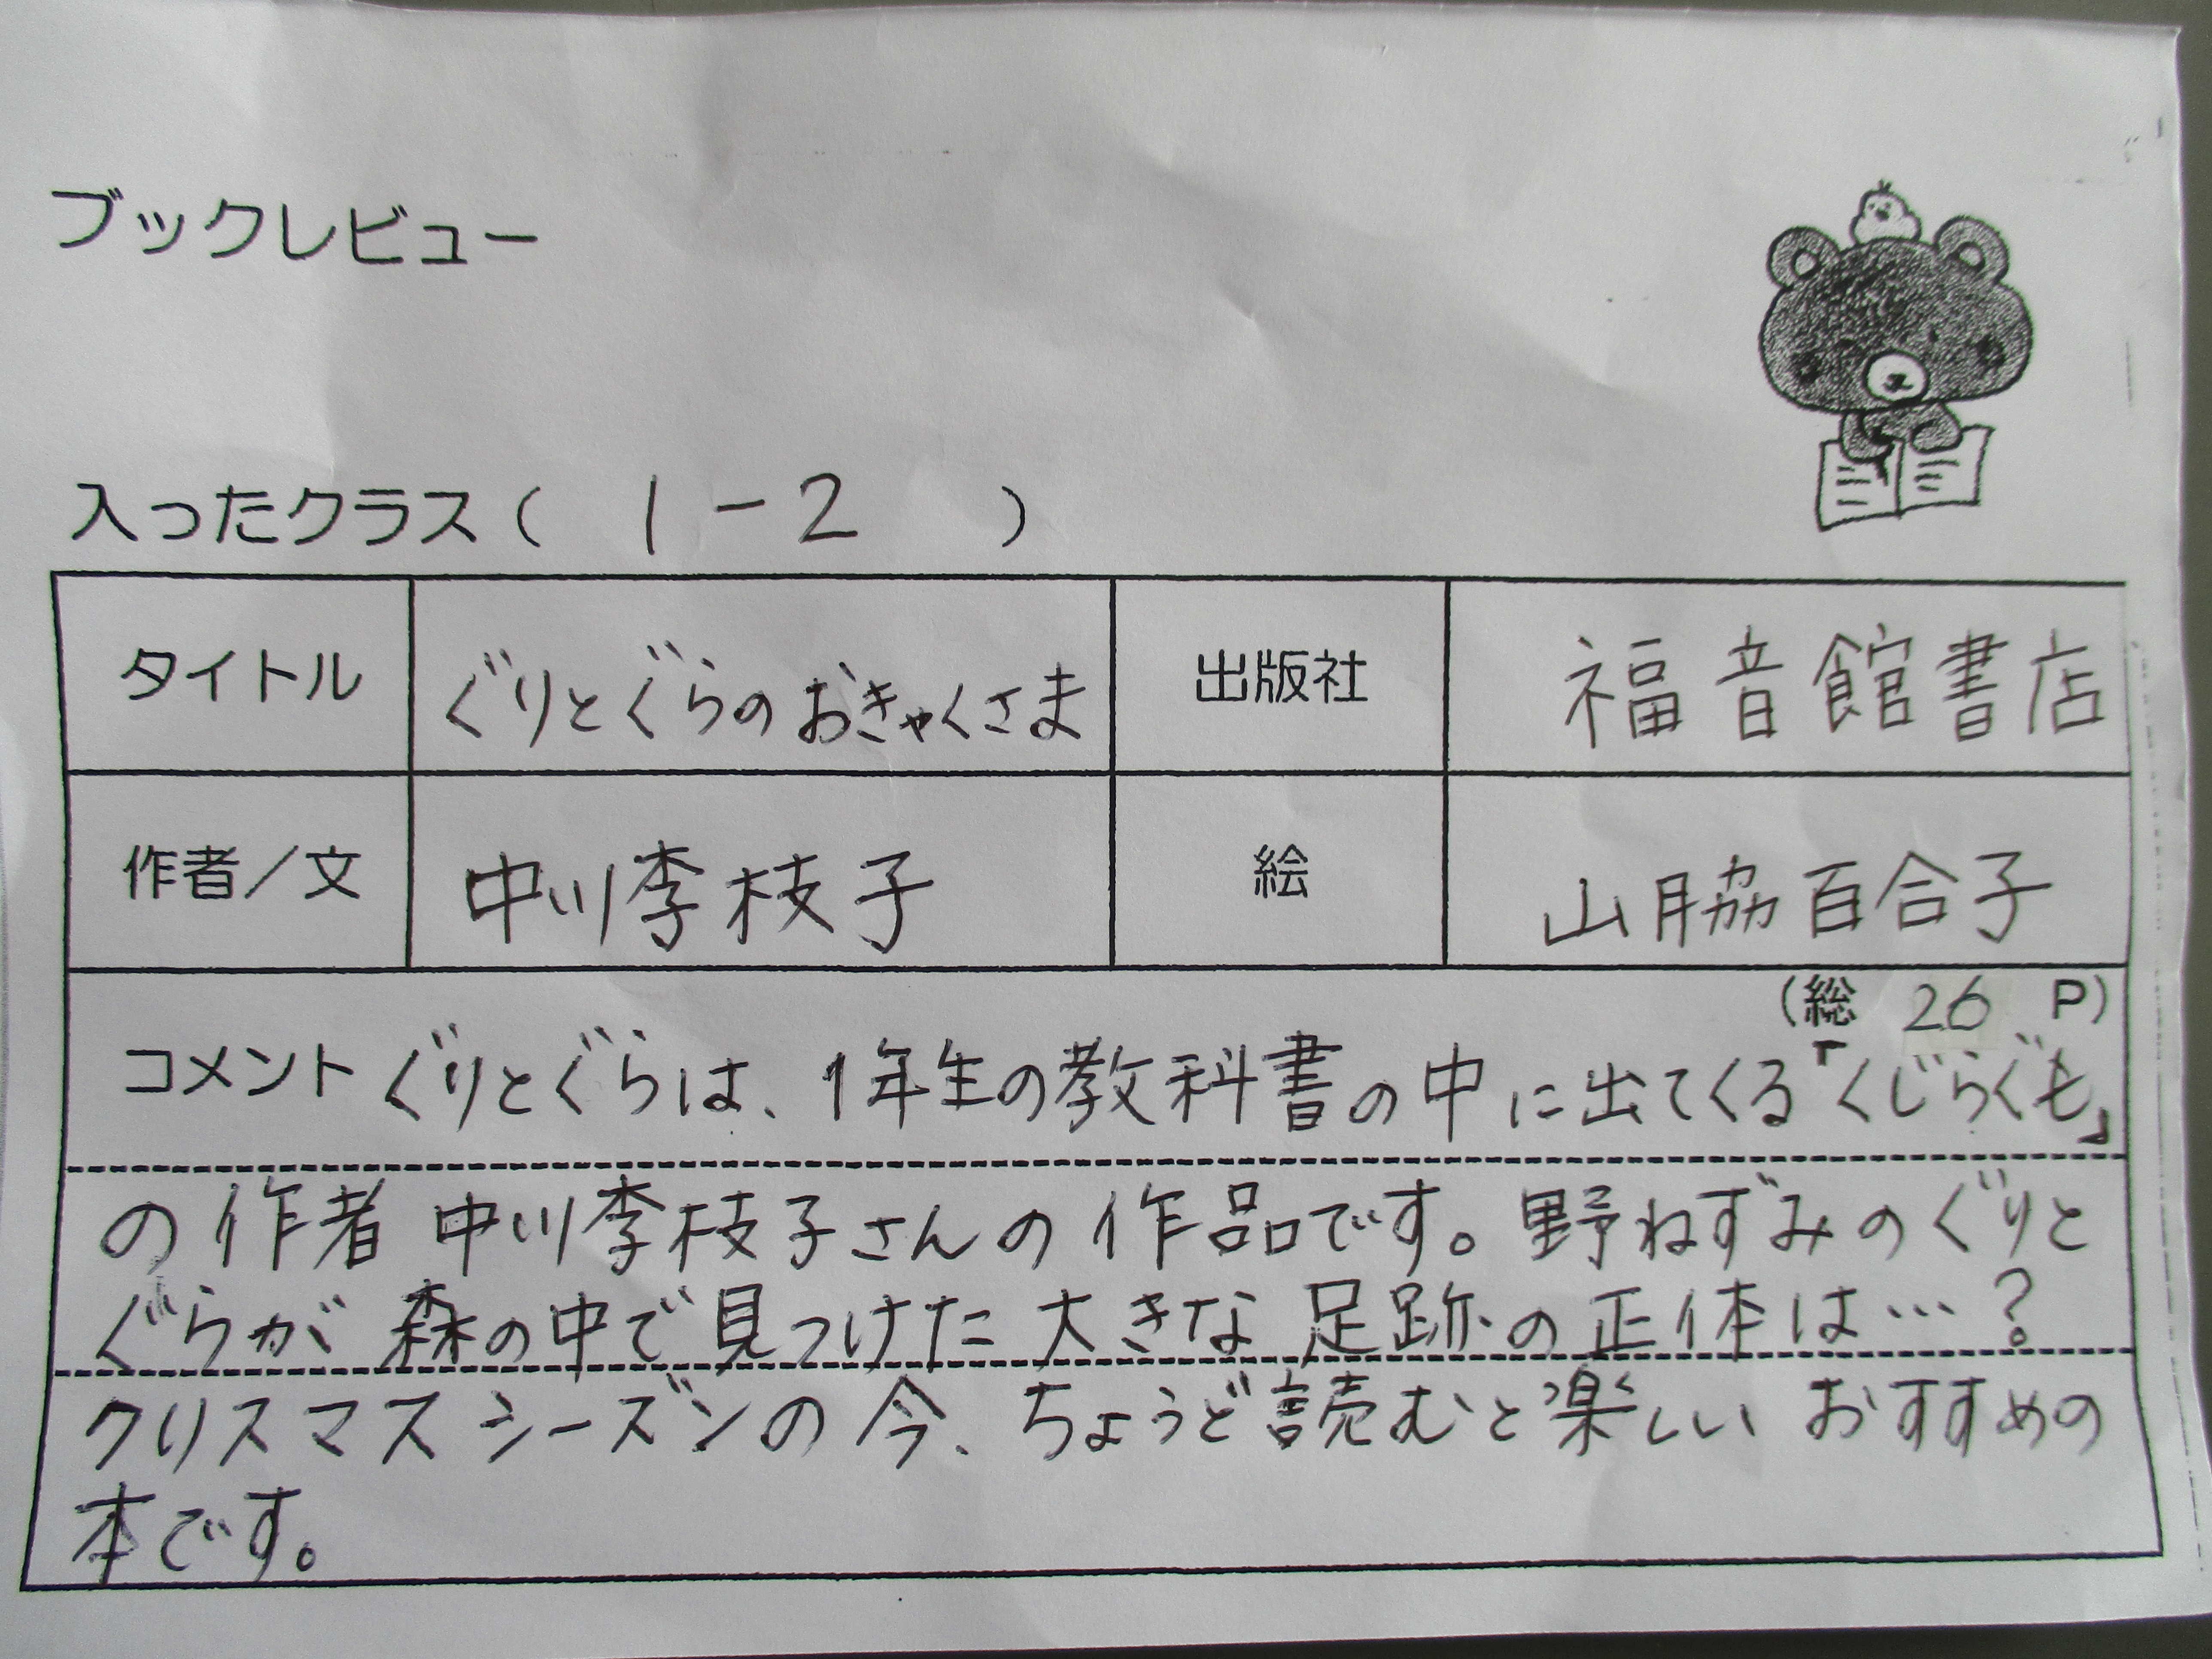 ブックレビュー
入ったクラス( 1-2 )
タイトル ぐりとぐらのおきゃくさま 出版社 福音館書店
作者/文 中川李枝子 絵 山脇百合子
(総 26 P)
コメント ぐりとぐらは、1年生の教科書の中に出てくる「くじらぐも」
の作者 中川李枝子さんの作品です。野ねずみのぐりと
ぐらが森の中で見つけた大きな足跡の正体は…?
クリスマスシーズンの今、ちょうど読むと楽しい おすすめの
本です。